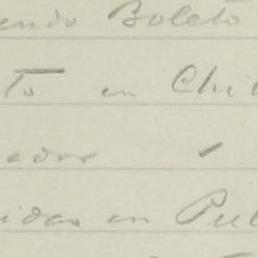 endo Boleto
to en Chi
ador
idas en Pu